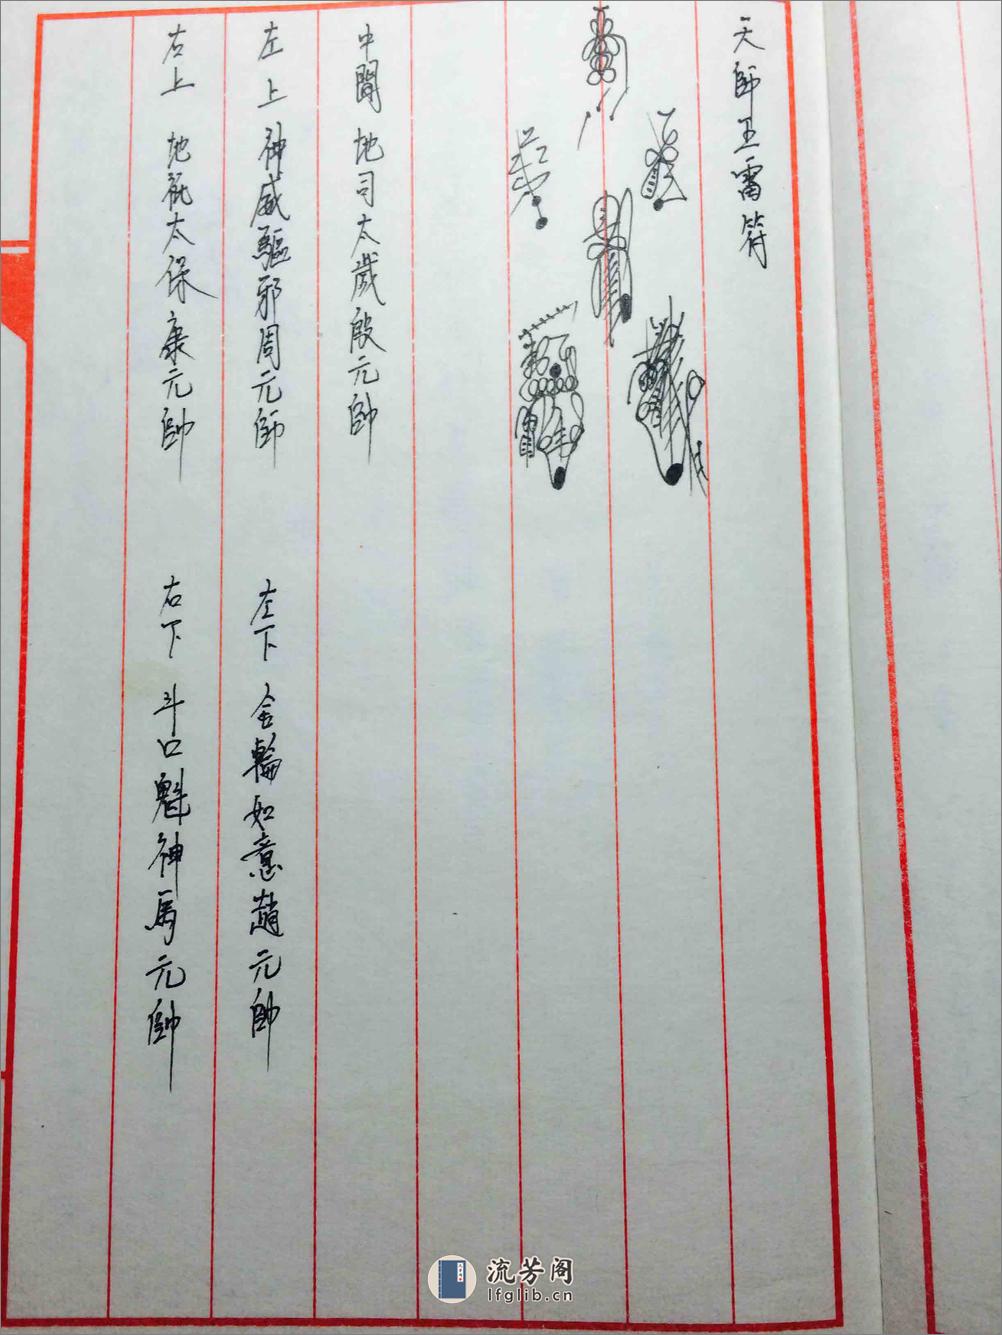 天師五雷符
中間 地司太歲殷元帥
左上 神威驅邪周元帥
左下 金輪如意趙元帥
右上 地祇太保康元帥
右下 斗口魁神馬元帥
流芳阁
lfglib.cn